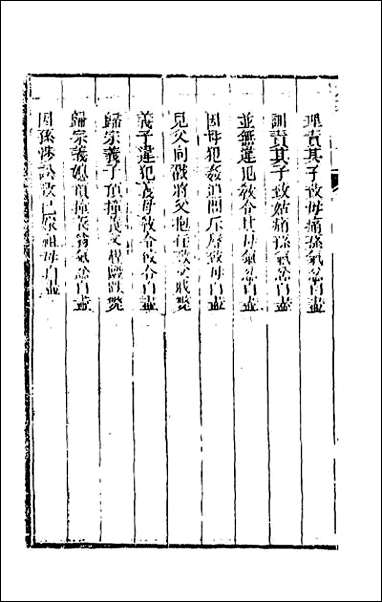 理責其子致母痛孫氣忿自盡
訓責其子致姑痛孫氣忿自盡
並無違犯教令其母氣忿自盡
因母犯姦逃問斥辱致母自盡
見父同戲將父抱住致父戕斃
義子違犯義母教令致令自盡
歸宗義子頂撞義父趕毆跌斃
歸宗義媳頂撞義翁氣忿自盡
因孫悌訟致已故祖母自盡